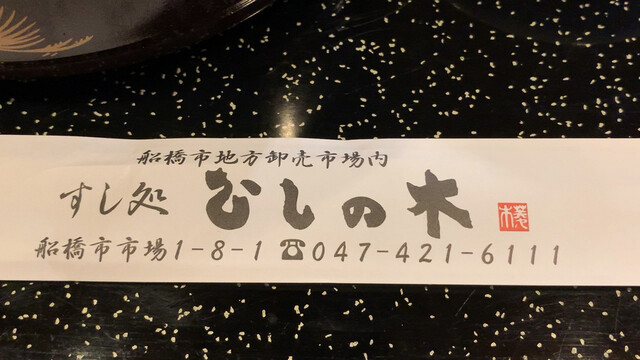 船橋市地方卸売市場内
すし処 むしの木
船橋市市場1-8-1 ☎047-421-6111